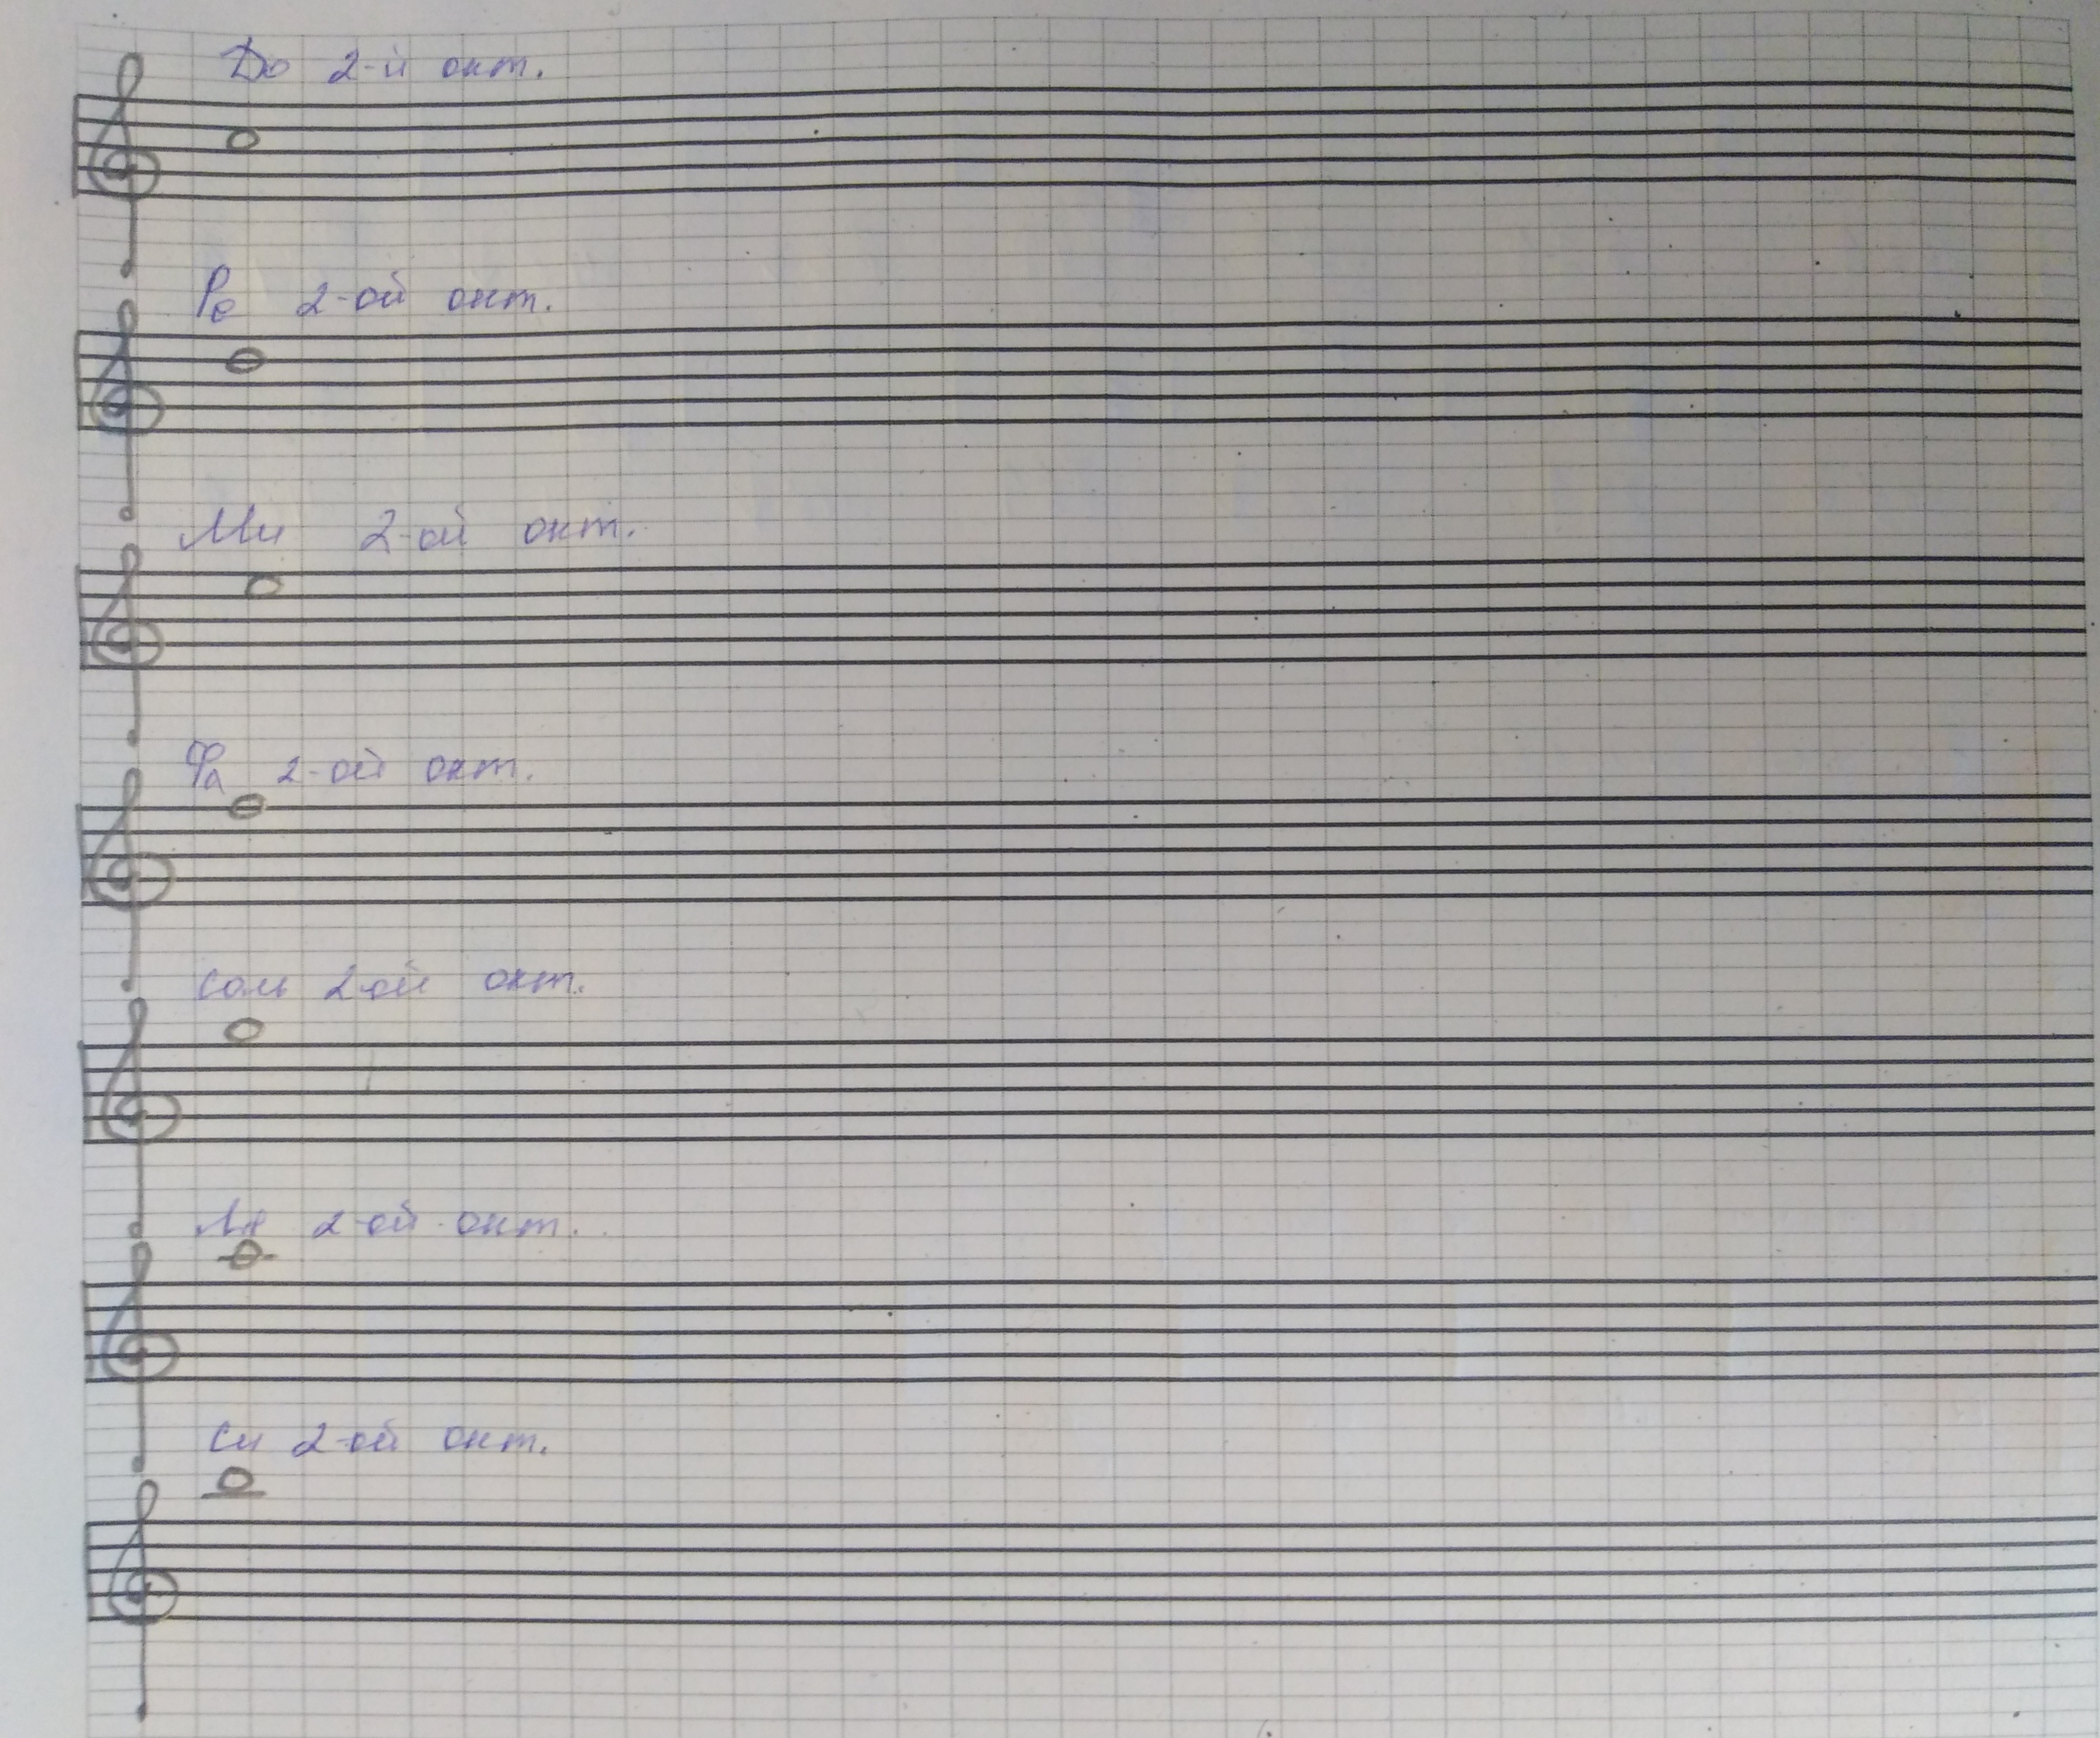 До 2-й окт.
Ре 2-ой окт.
Ми 2-ой окт.
Фа 2-ой окт.
Соль 2ой окт.
Ля 2-ой окт.
Си 2-ой окт.